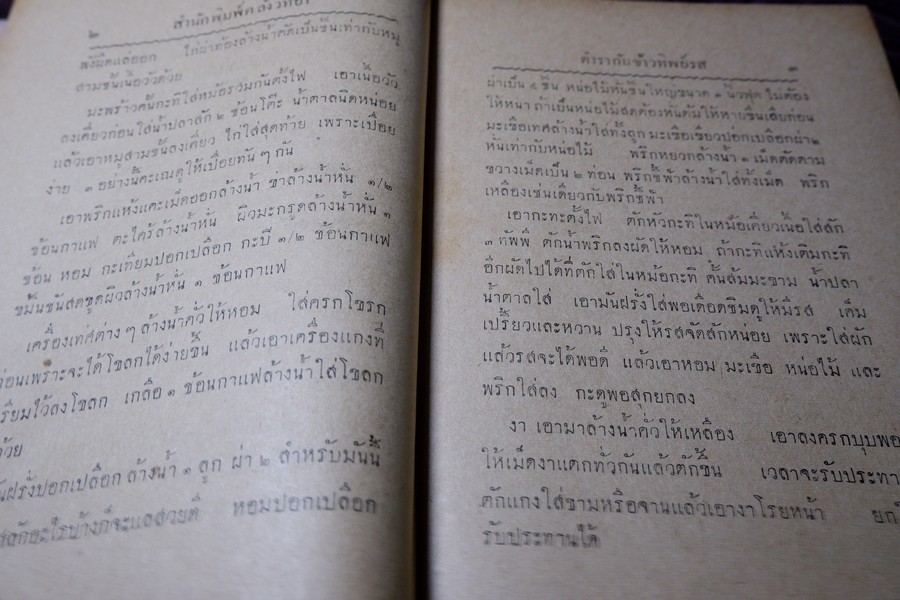 ๒ สำนักพิมพ์คลังวิทยา
พังผืดแล่ออก ไก่ผ่าท้องล้างน้ำตัดเป็นชิ้นเท่ากับหมู
สามชั้นเนื้อวัวด้วย
มะพร้าวคั้นกะทิใส่หม้อรวมกันตั้งไฟ เอาเนื้อวัว
ลงเคี่ยวก่อนใส่น้ำปลาสัก ๒ ช้อนโต๊ะ น้ำตาลนิดหน่อย
แล้วเอาหมูสามชั้นลงเคี่ยว ไก่ใส่สุดท้าย เพราะเปื่อย
ง่าย ๓ อย่างนี้คะเณดูให้เปื่อยทัน ๆ กัน
เอาพริกแห้งแคะเม็ดออกล้างน้ำ ข่าล้างน้ำหั่น ๑/๒
ช้อนกาแฟ ตะไคร้ล้างน้ำหั่น ผิวมะกรูดล้างน้ำหั่น ๑
ช้อน หอม กะเทียมปอกเปลือก กะปิ ๑/๒ ช้อนกาแฟ
ขมิ้นชันสดขูดผิวล้างน้ำหั่น ๑ ช้อนกาแฟ
เครื่องเทศต่าง ๆ ล้างน้ำคั่วให้หอม ใส่ครกโขรก
ก่อนเพราะจะได้โขลกได้ง่ายขึ้น แล้วเอาเครื่องแกงที่
เตรียมไว้ลงโขลก เกลือ ๑ ช้อนกาแฟล้างน้ำใส่โขลก
ด้วย
มันฝรั่งปอกเปลือก ล้างน้ำ ๑ ลูก ผ่า ๒ สำหรับมันนี้
สลักอะไรบ้างก็จะแลสวยดี หอมปอกเปลือก
ตำรากับข้าวทิพย์รส ๓
ผ่าเป็น ๔ ชิ้น หน่อไม้หั่นชิ้นใหญ่ขนาด ๑ นิ้วฟุต ไม่ต้อง
ให้หนา ถ้าเป็นหน่อไม้สดต้องหั่นต้มให้หายขื่นเสียก่อน
มะเขือเทศล้างน้ำใส่ทั้งลูก มะเขือเขียวปอกเปลือกผ่า ๒
หั่นเท่ากับหน่อไม้ พริกหยวกล้างน้ำ ๑ เม็ดตัดตาม
ขวางเม็ดเป็น ๒ ท่อน พริกชี้ฟ้าล้างน้ำใส่ทั้งเม็ด พริก
เหลืองเช่นเดียวกับพริกชี้ฟ้า
เอากะทะตั้งไฟ ตักหัวกะทิในหม้อเคี่ยวเนื้อใส่สัก
๓ ทัพพี ตักน้ำพริกลงผัดให้หอม ถ้ากะทิแห้งเติมกะทิ
อีกผัดไปได้ที่ตักใส่ในหม้อกะทิ คั้นส้มมะขาม น้ำปลา
น้ำตาลใส่ เอามันฝรั่งใส่พอเดือดชิมดูให้มีรส เค็ม
เปรี้ยวและหวาน ปรุงให้รสจัดสักหน่อย เพราะใส่ผัก
แล้วรสจะได้พอดี แล้วเอาหอม มะเขือ หน่อไม้ และ
พริกใส่ลง กะดูพอสุกยกลง
งา เอามาล้างน้ำคั่วให้เหลือง เอาลงครกบุบพอ
ให้เม็ดงาแตกทั่วกันแล้วตักขึ้น เวลาจะรับประทา
ตักแกงใส่ชามหรือจานแล้วเอางาโรยหน้า ยก
รับประทานได้